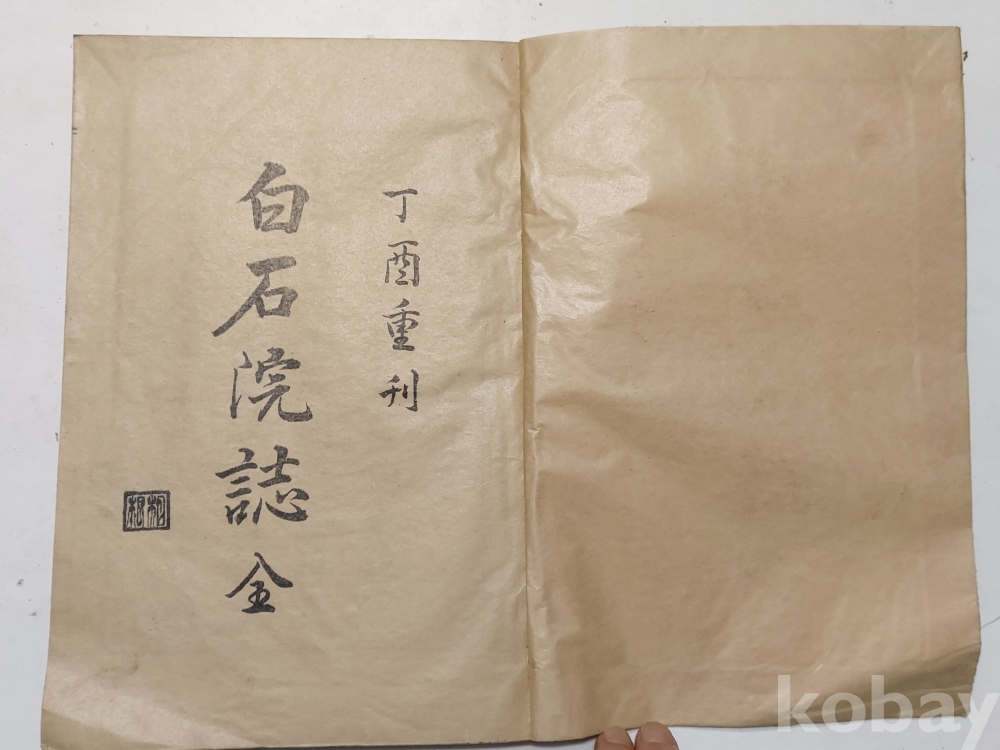 丁酉重刊
白石院誌全
kobay